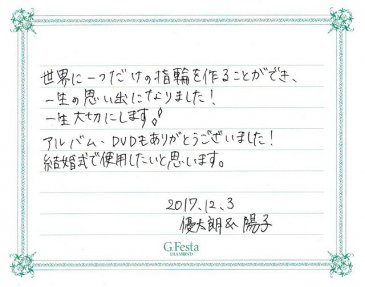 世界に一つだけの指輪を作ることができ、
一生の思い出になりました!
一生大切にします
アルバム、DVDもありがとうございました!
結婚式で使用したいと思います。
2017.12.3
優太朗& 陽子
G.Festa
DIAMOND